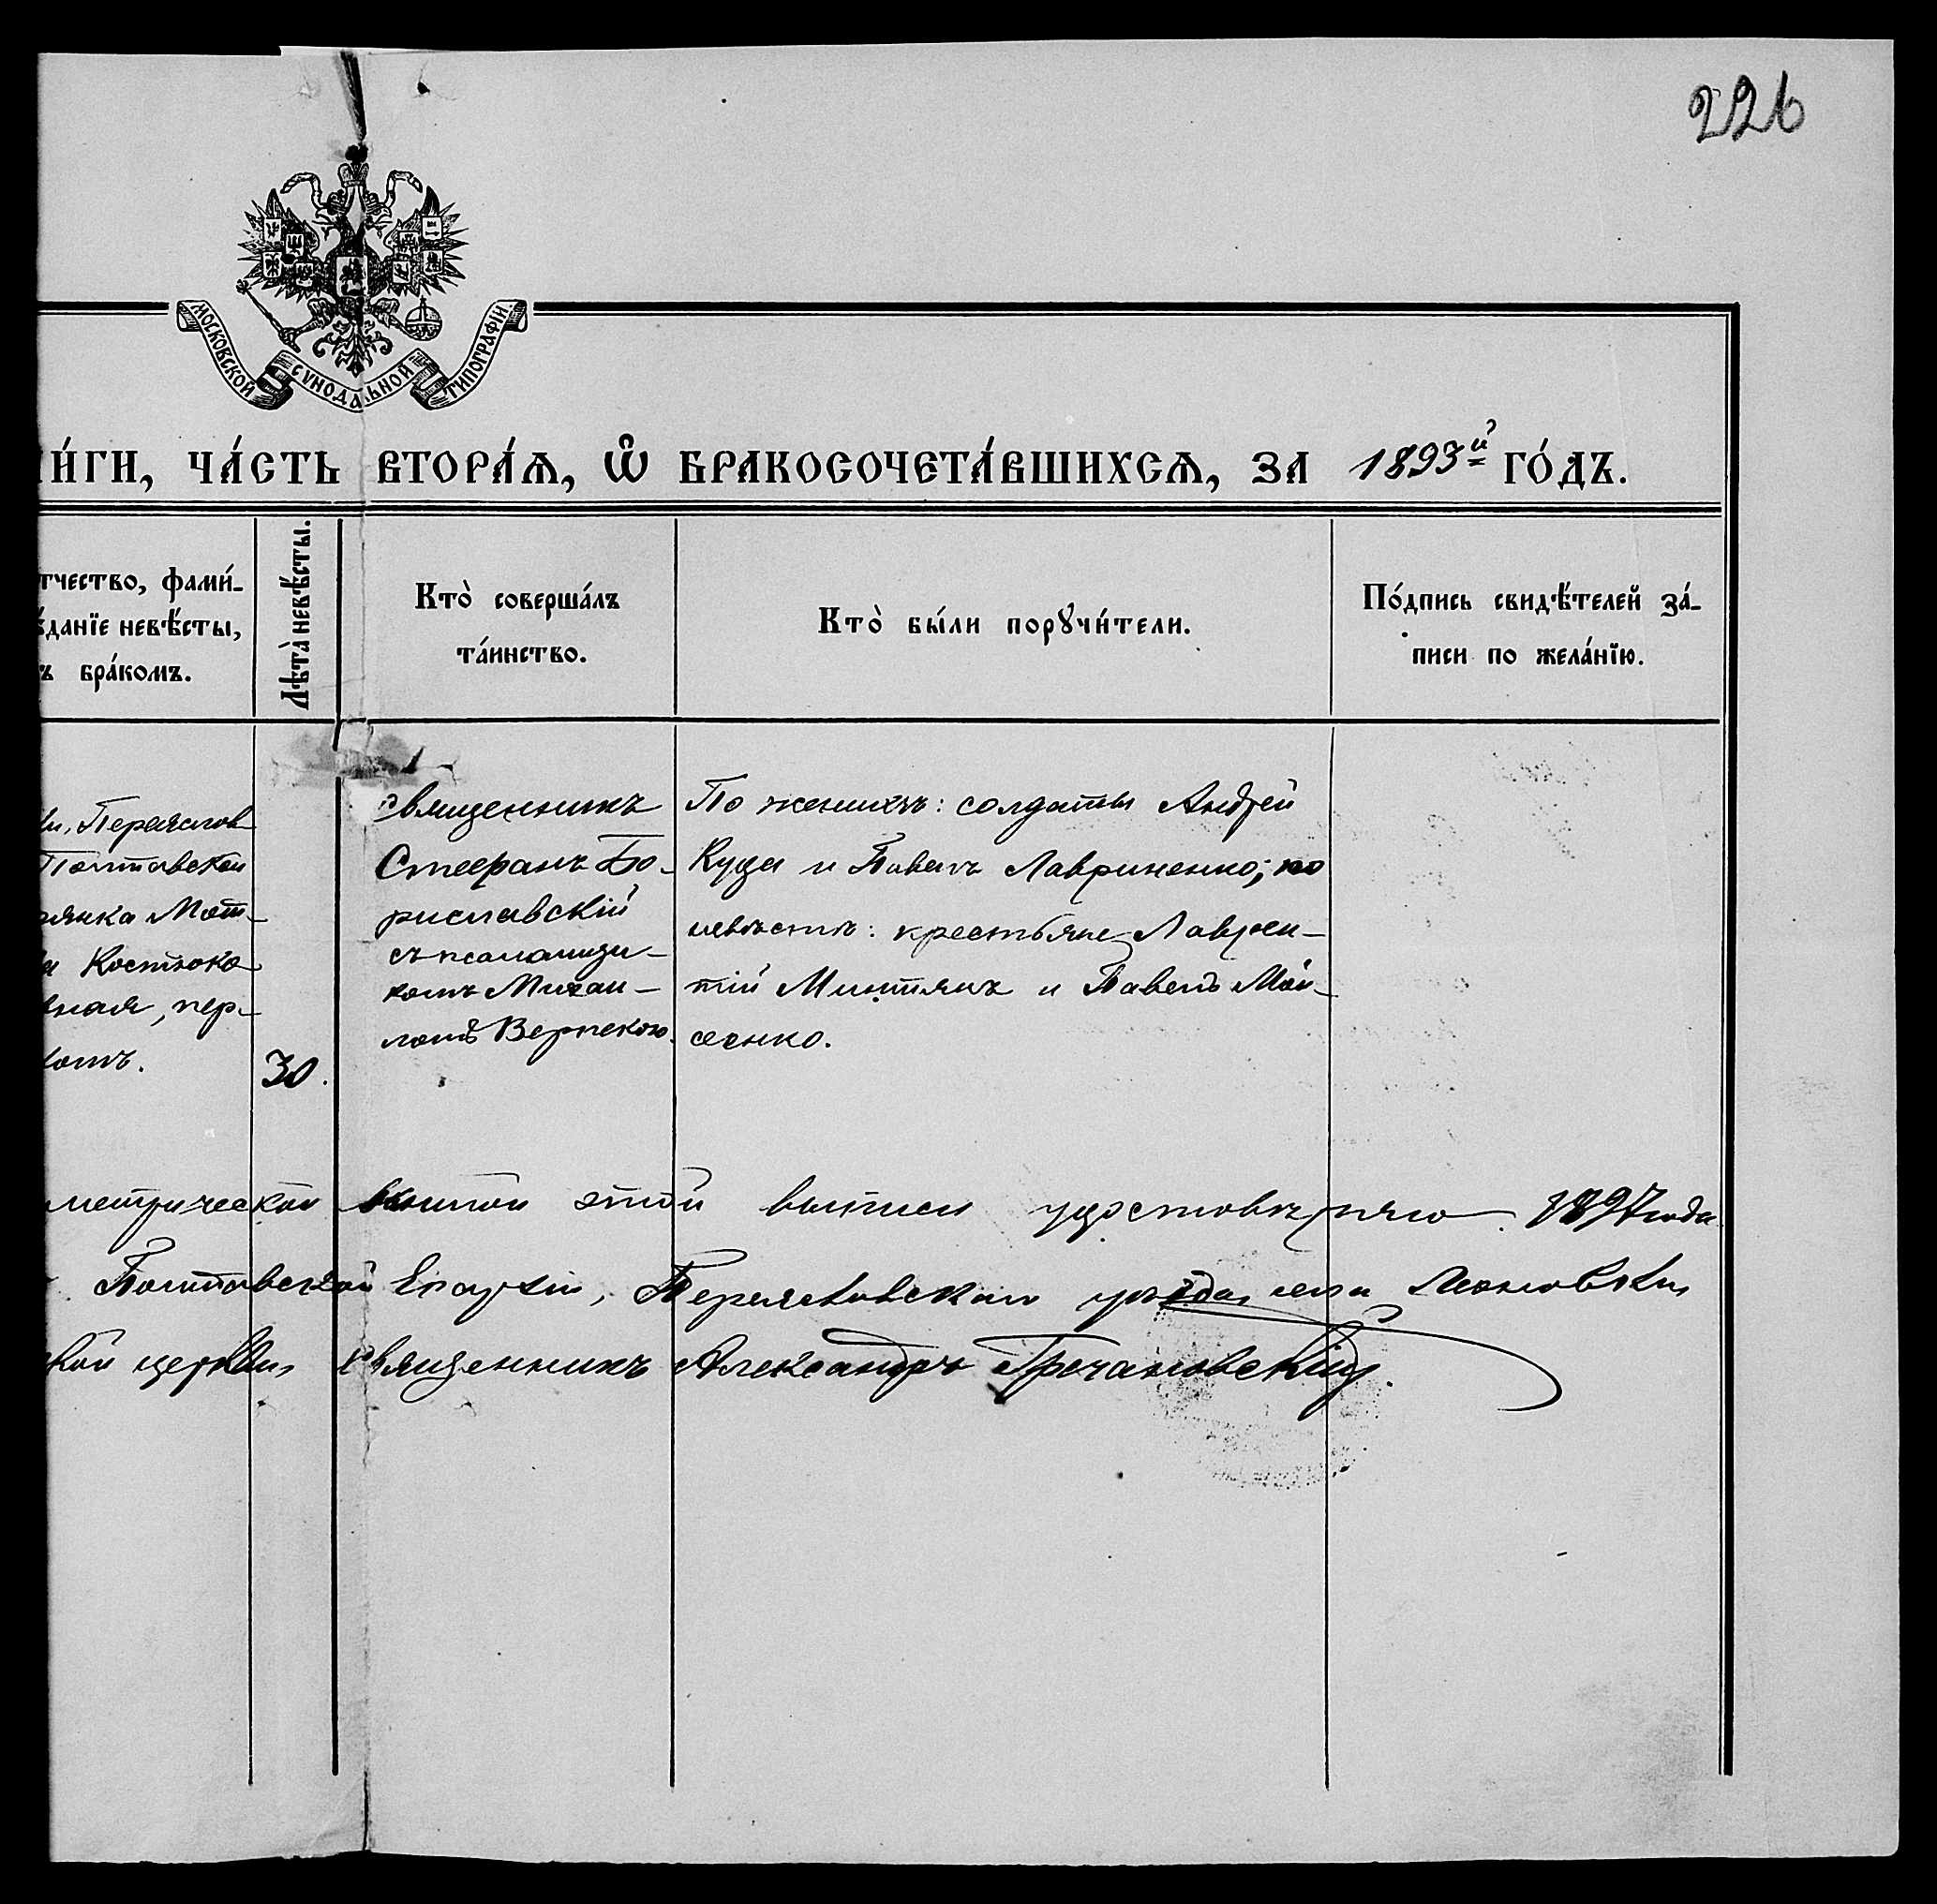 226
МОСКОВСКОЙ СѴНОДАЛЬНОЙ ТИПОГРАФІИ.
И́ГИ, ЧА́СТЬ ВТОРА́Ѧ, Ѽ БРАКОСОЧЕТА́ВШИХСѦ, ЗА 1893й ГО́ДЪ.
тчество, фами́-
да́нїе невѣ́сты,
ъ бра́комъ.
Лѣта̀ невѣ́сты.
Кто̀ соверша́лъ
та́инство.
Кто̀ бы́ли порꙋчи́тели.
По́дпись свидѣ́телей за́-
писи по жела́нїю.
Переяслов
Полтавской
янка Мот-
Костюко
вная, пер-
30.
Священникъ
Стефанъ Бо-
риславскій
съ псаломщи-
комъ Михаи-
ломъ
По женихѣ: солдаты Андрей
Куца и Павелъ Лавриненко; по
невѣстѣ: крестьяне Лаврен-
тій и Павелъ Мои-
сеенко.
метрической книгой этой выписи удостовѣряю. 1897 года
Полтавской Епархіи, Переяславскаго уѣзда, села
кой церкви, Священникъ Александръ Гречановскій.